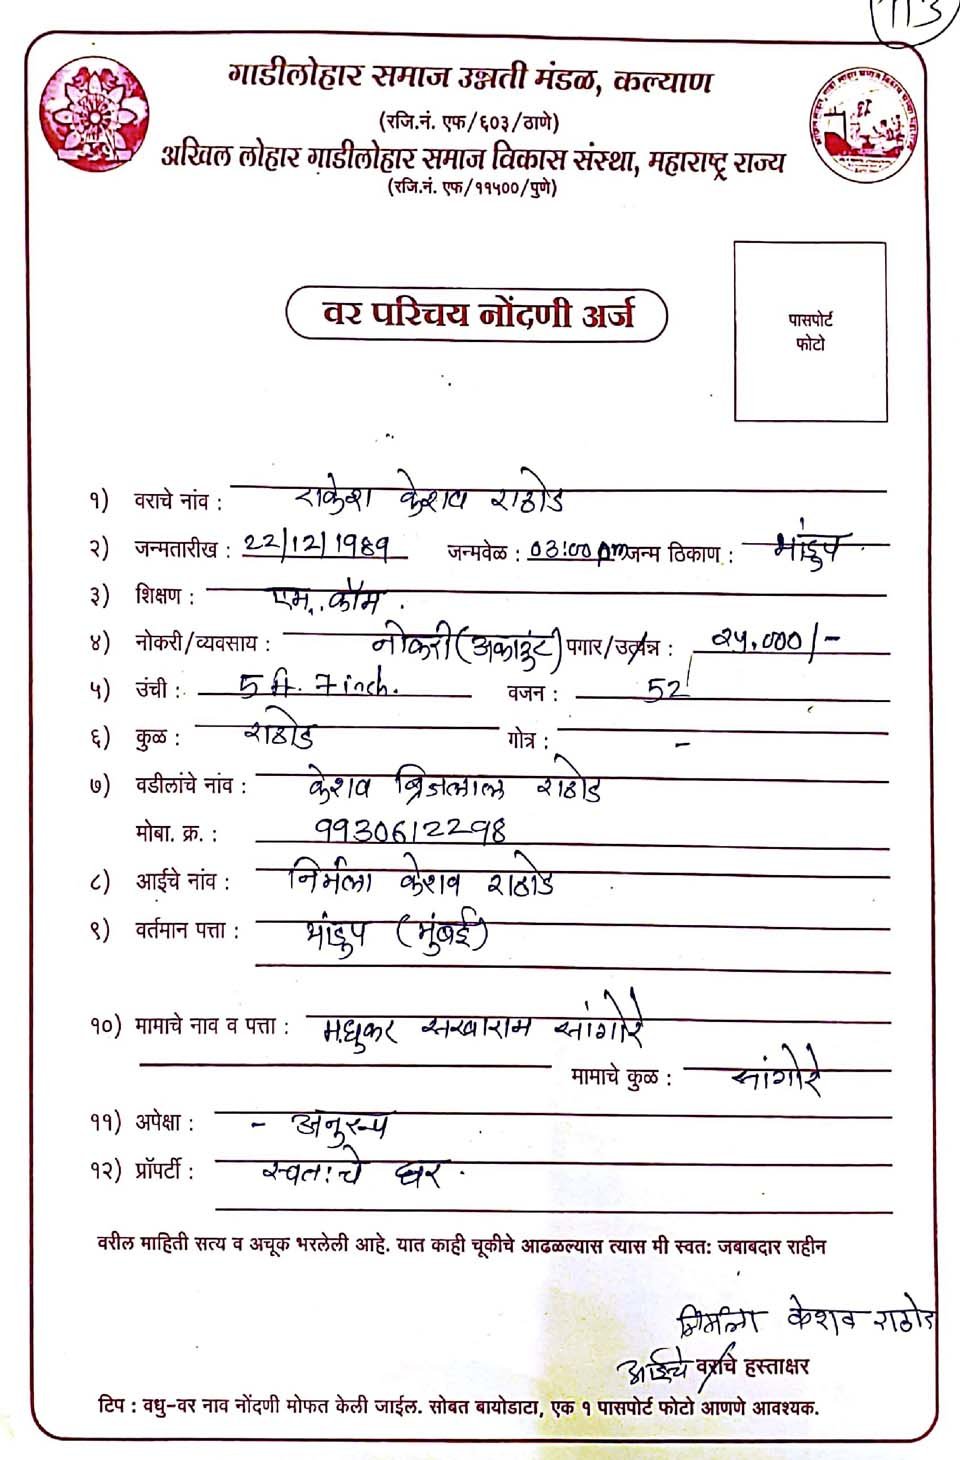 113
गाडीलोहार समाज उन्नती मंडळ, कल्याण
(रजि.नं. एफ/६०३/ठाणे)
अखिल लोहार गाडीलोहार समाज विकास संस्था, महाराष्ट्र राज्य
(रजि.नं. एफ/११५००/पुणे)
पासपोर्ट
फोटो
वर परिचय नोंदणी अर्ज
१) वराचे नांव : राकेश केशव राठोड
२) जन्मतारीख : 22/12/1989 जन्मवेळ : 03:00 pm जन्म ठिकाण : भांडुप
३) शिक्षण : एम. कॉम.
४) नोकरी/व्यवसाय : नोकरी (अकाउंट) पगार/उत्पन्न : २५,०००/-
५) उंची : 5 ft. 7 inch. वजन : 52
६) कुळ : राठोड गोत्र : -
७) वडीलांचे नांव : केशव ब्रिजलाल राठोड
मोबा. क्र. : 9930612298
८) आईचे नांव : निर्मला केशव राठोड
९) वर्तमान पत्ता : भांडुप (मुंबई)
१०) मामाचे नाव व पत्ता : मधुकर सखाराम सांगोरे
मामाचे कुळ : सांगोरे
११) अपेक्षा : - अनुरूप
१२) प्रॉपर्टी : स्वतःचे घर.
वरील माहिती सत्य व अचूक भरलेली आहे. यात काही चूकीचे आढळल्यास त्यास मी स्वत: जबाबदार राहीन
निर्मला केशव राठोड
आईचे वराचे हस्ताक्षर
टिप : वधु-वर नाव नोंदणी मोफत केली जाईल. सोबत बायोडाटा, एक १ पासपोर्ट फोटो आणणे आवश्यक.